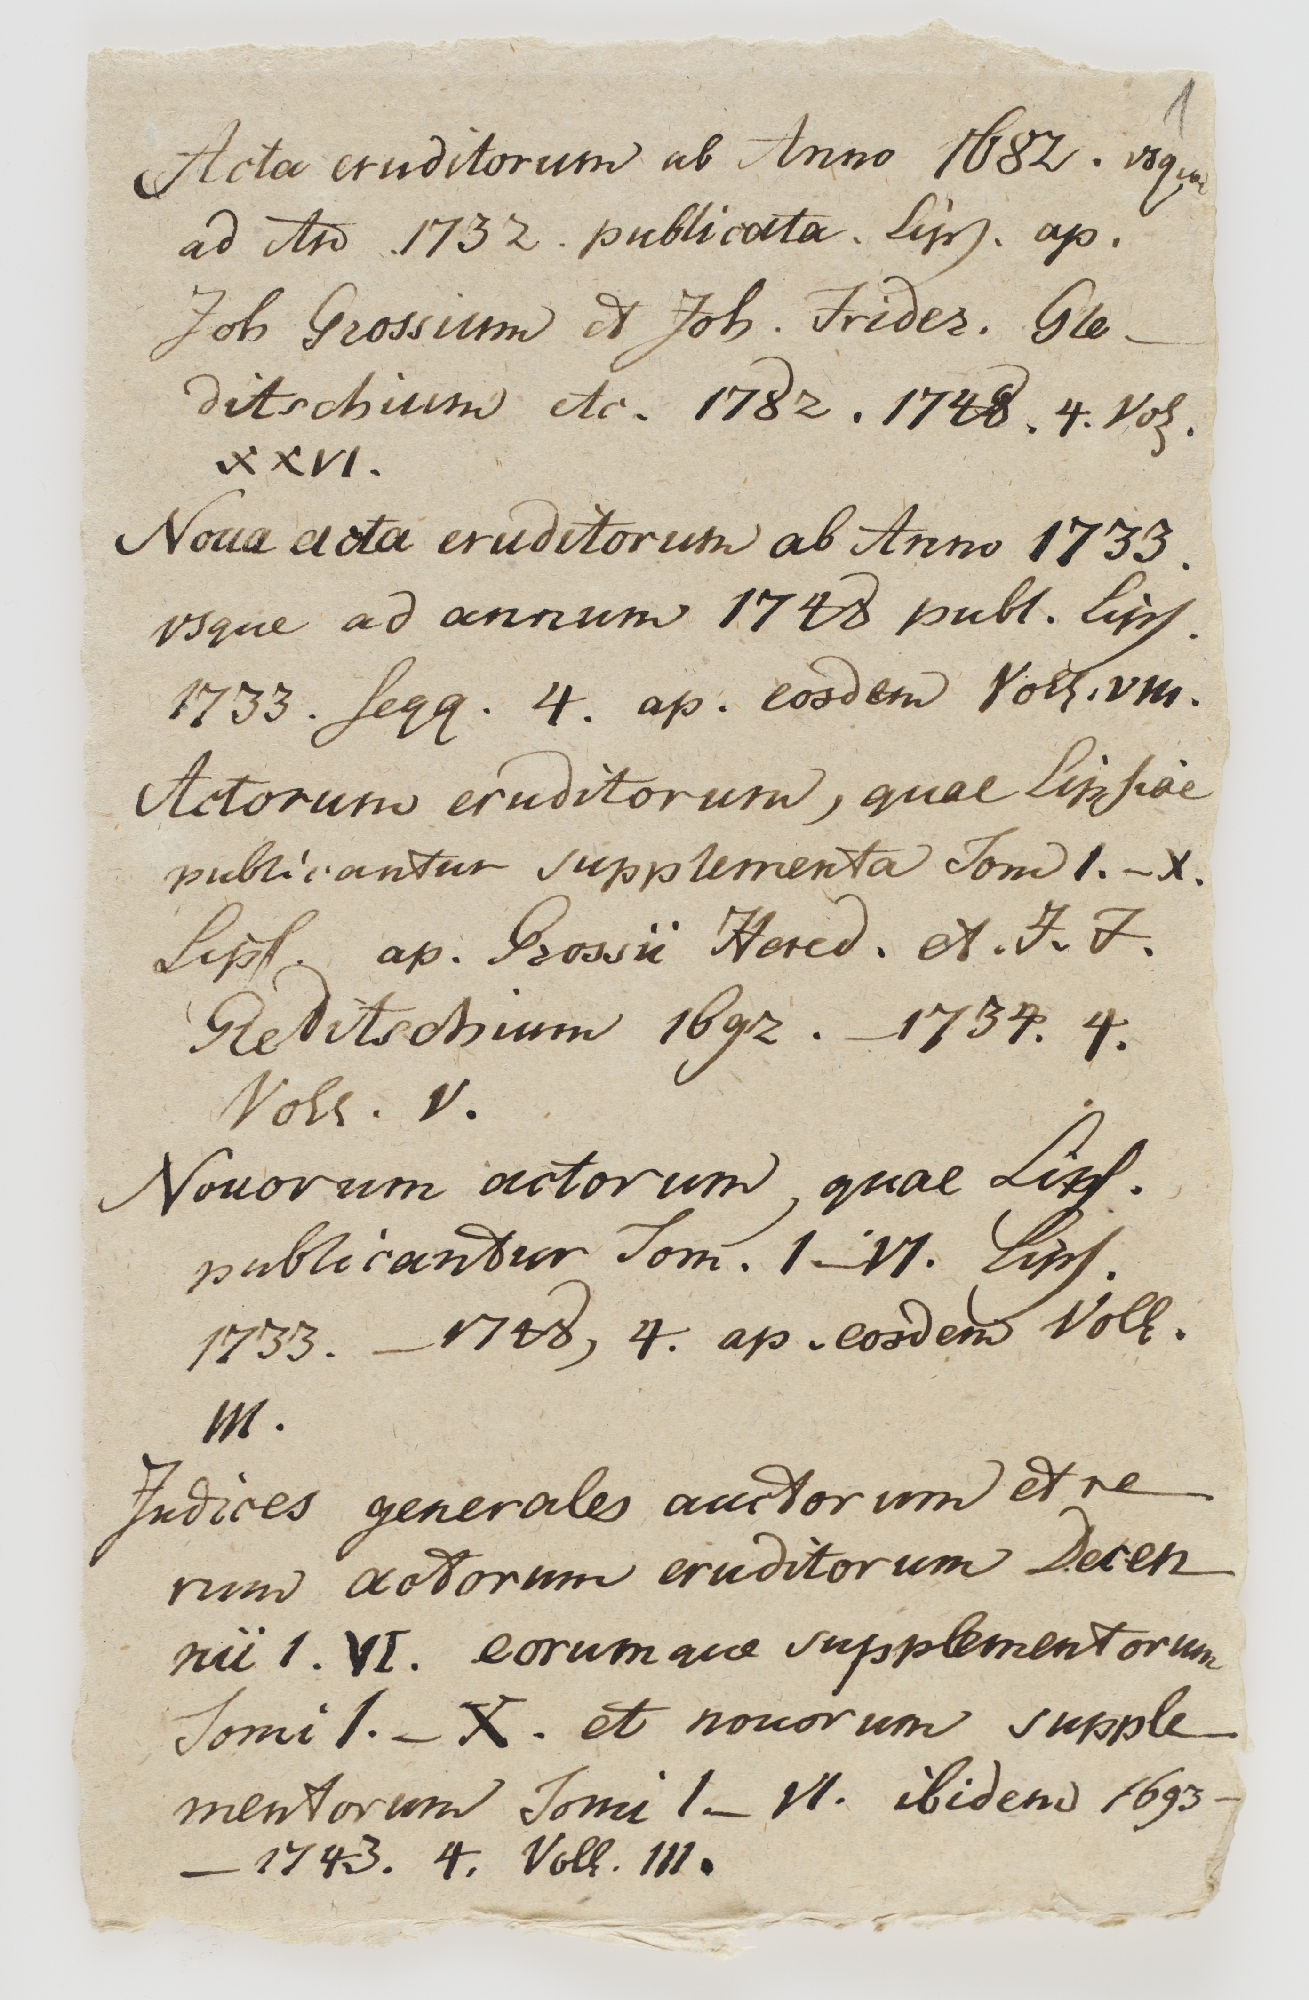 1
Acta eruditorum ab Anno 1682. vsque
ad Ao 1732. publicata. Lips. ap.
Joh Grossium et Joh. Frider. Gle-
ditschium etc. 1782. 1748. 4. Voll.
XXVI.
Noua acta eruditorum ab Anno 1733.
vsque ad annum 1748 publ. Lips.
1733. seqq. 4. ap. eosdem Voll. VIII.
Actorum eruditorum, quae Lipsiae
publicantur supplementa Tom I. - X.
Lips. ap. Grossii Hered. et. J. F.
Gleditschium 1692. - 1734. 4.
Voll. V.
Nouorum actorum, quae Lips.
publicantur Tom. I - VI. Lips.
1733. - 1748, 4. ap. eosdem Voll.
III.
Indices generales auctorum et re-
rum actorum eruditorum Decen-
nii I. VI. eorumque supplementorum
Tomi I. - X. et nouorum supple-
mentorum Tomi I - VI. ibidem 1693-
- 1743. 4. Voll. III.